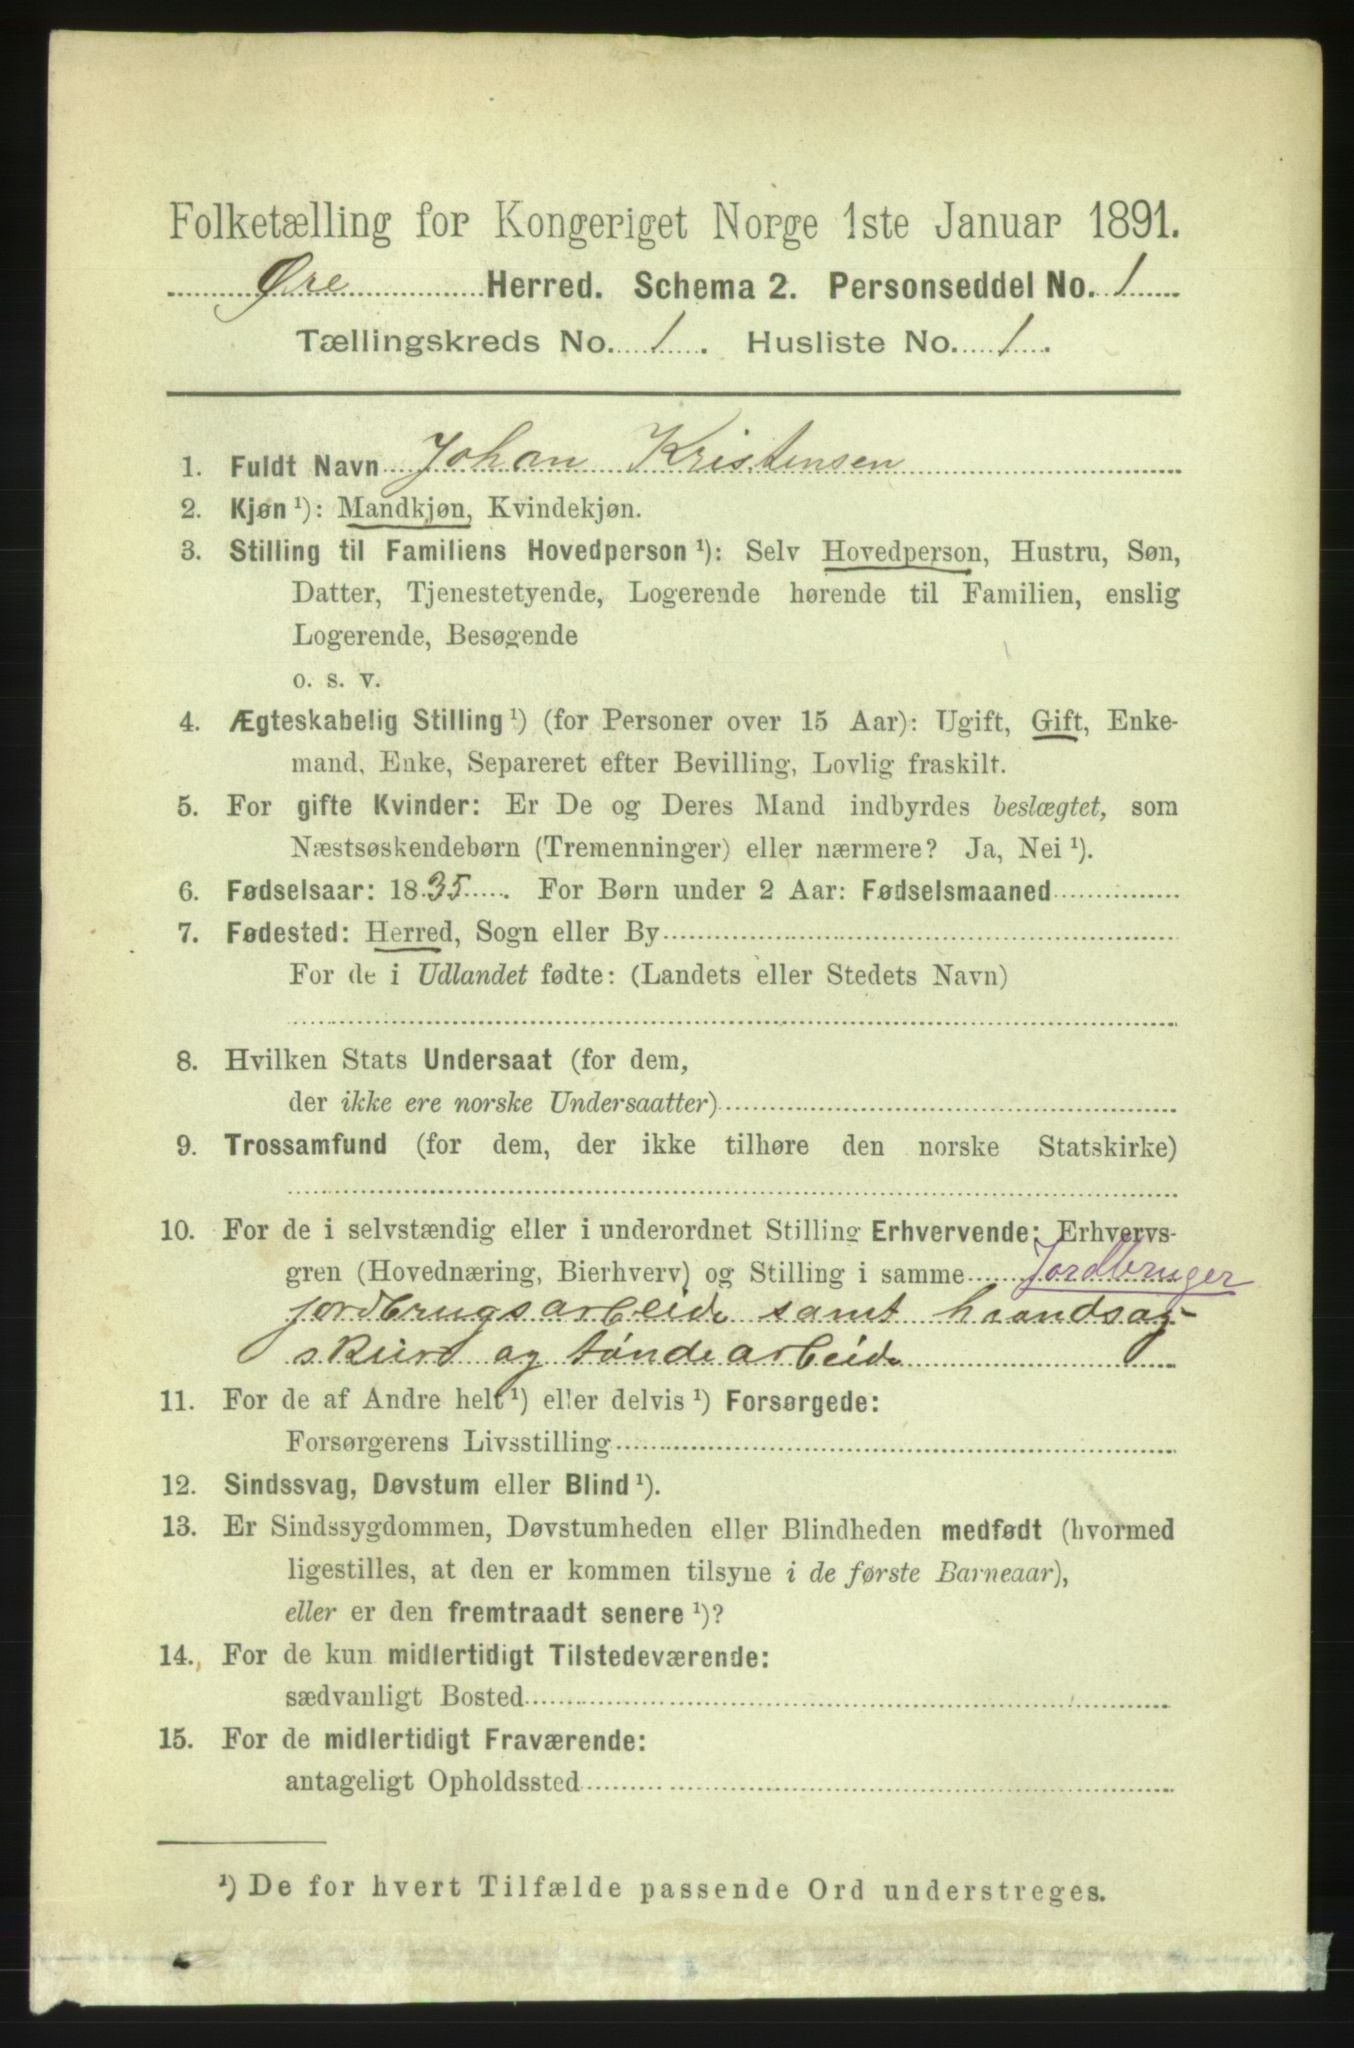 Folketælling for Kongeriget Norge 1ste Januar 1891.
Øre Herred. Schema 2. Personseddel No. 1
Tællingskreds No. 1. Husliste No. 1.
1. Fuldt Navn Johan Kristensen
2. Kjøn ¹): Mandkjøn, Kvindekjøn.
3. Stilling til Familiens Hovedperson ¹): Selv Hovedperson, Hustru, Søn,
Datter, Tjenestetyende, Logerende hørende til Familien, enslig
Logerende, Besøgende
o. s. v.
4. Ægteskabelig Stilling ¹) (for Personer over 15 Aar): Ugift, Gift, Enke-
mand, Enke, Separeret efter Bevilling, Lovlig fraskilt.
5. For gifte Kvinder: Er De og Deres Mand indbyrdes beslægtet, som
Næstsøskendebørn (Tremenninger) eller nærmere? Ja, Nei ¹).
6. Fødselsaar: 1835. For Børn under 2 Aar: Fødselsmaaned
7. Fødested: Herred, Sogn eller By
For de i Udlandet fødte: (Landets eller Stedets Navn)
8. Hvilken Stats Undersaat (for dem,
der ikke ere norske Undersaatter)
9. Trossamfund (for dem, der ikke tilhøre den norske Statskirke)
10. For de i selvstændig eller i underordnet Stilling Erhvervende: Erhvervs-
gren (Hovednæring, Bierhverv) og Stilling i samme Jordbruger
jordbrugsarbeide samt haandsag-
skurd og tøndearbeide
11. For de af Andre helt ¹) eller delvis ¹) Forsørgede:
Forsørgerens Livsstilling
12. Sindssvag, Døvstum eller Blind ¹).
13. Er Sindssygdommen, Døvstumheden eller Blindheden medfødt (hvormed
ligestilles, at den er kommen tilsyne i de første Barneaar),
eller er den fremtraadt senere ¹)?
14. For de kun midlertidigt Tilstedeværende:
sædvanligt Bosted
15. For de midlertidigt Fraværende:
antageligt Opholdssted
¹) De for hvert Tilfælde passende Ord understreges.